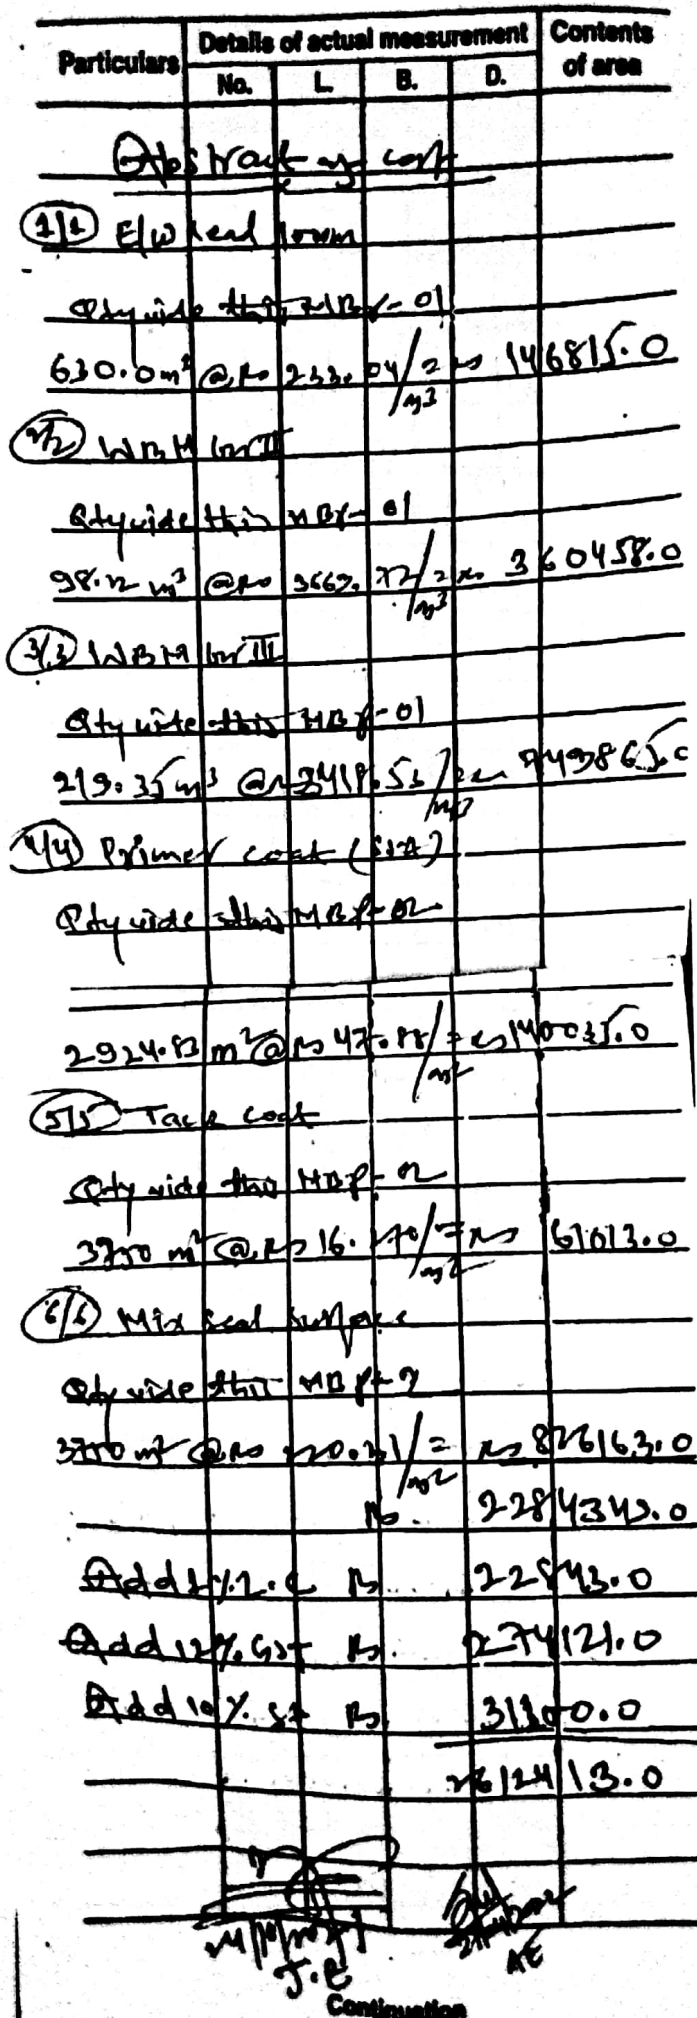 Particulars Details of actual measurement Contents of area
No. L. B. D.
Abstract of cost
1/1 E/W lead
Qty vide this MB P-01
630.0 m³ @ Rs 233.04/m³ = Rs 146815.0
2/2 WBM Gr II
Qty vide this MB P-01
98.12 m³ @ Rs /m³ = Rs 360458.0
3/3 WBM Gr III
Qty vide this MB P-01
219.35 m³ @ Rs 3418.53/m³ = Rs 749865.0
4/4 Primer coat
Qty vide this MB P-02
2924.83 m² @ Rs 47.88/m² = Rs 140035.0
5/5 Tack coat
Qty vide this MB P-02
3750 m² @ Rs 16.270/m² = Rs 61013.0
6/6 Mix seal surface
Qty vide this MB P-2
3750 m² @ Rs 220.31/m² = Rs 826163.0
Rs. 2284342.0
Add 1% L.C Rs. 22843.0
Add 12% GST Rs. 274121.0
Add 10% Rs.
2612413.0
J.E
AE
Continuation